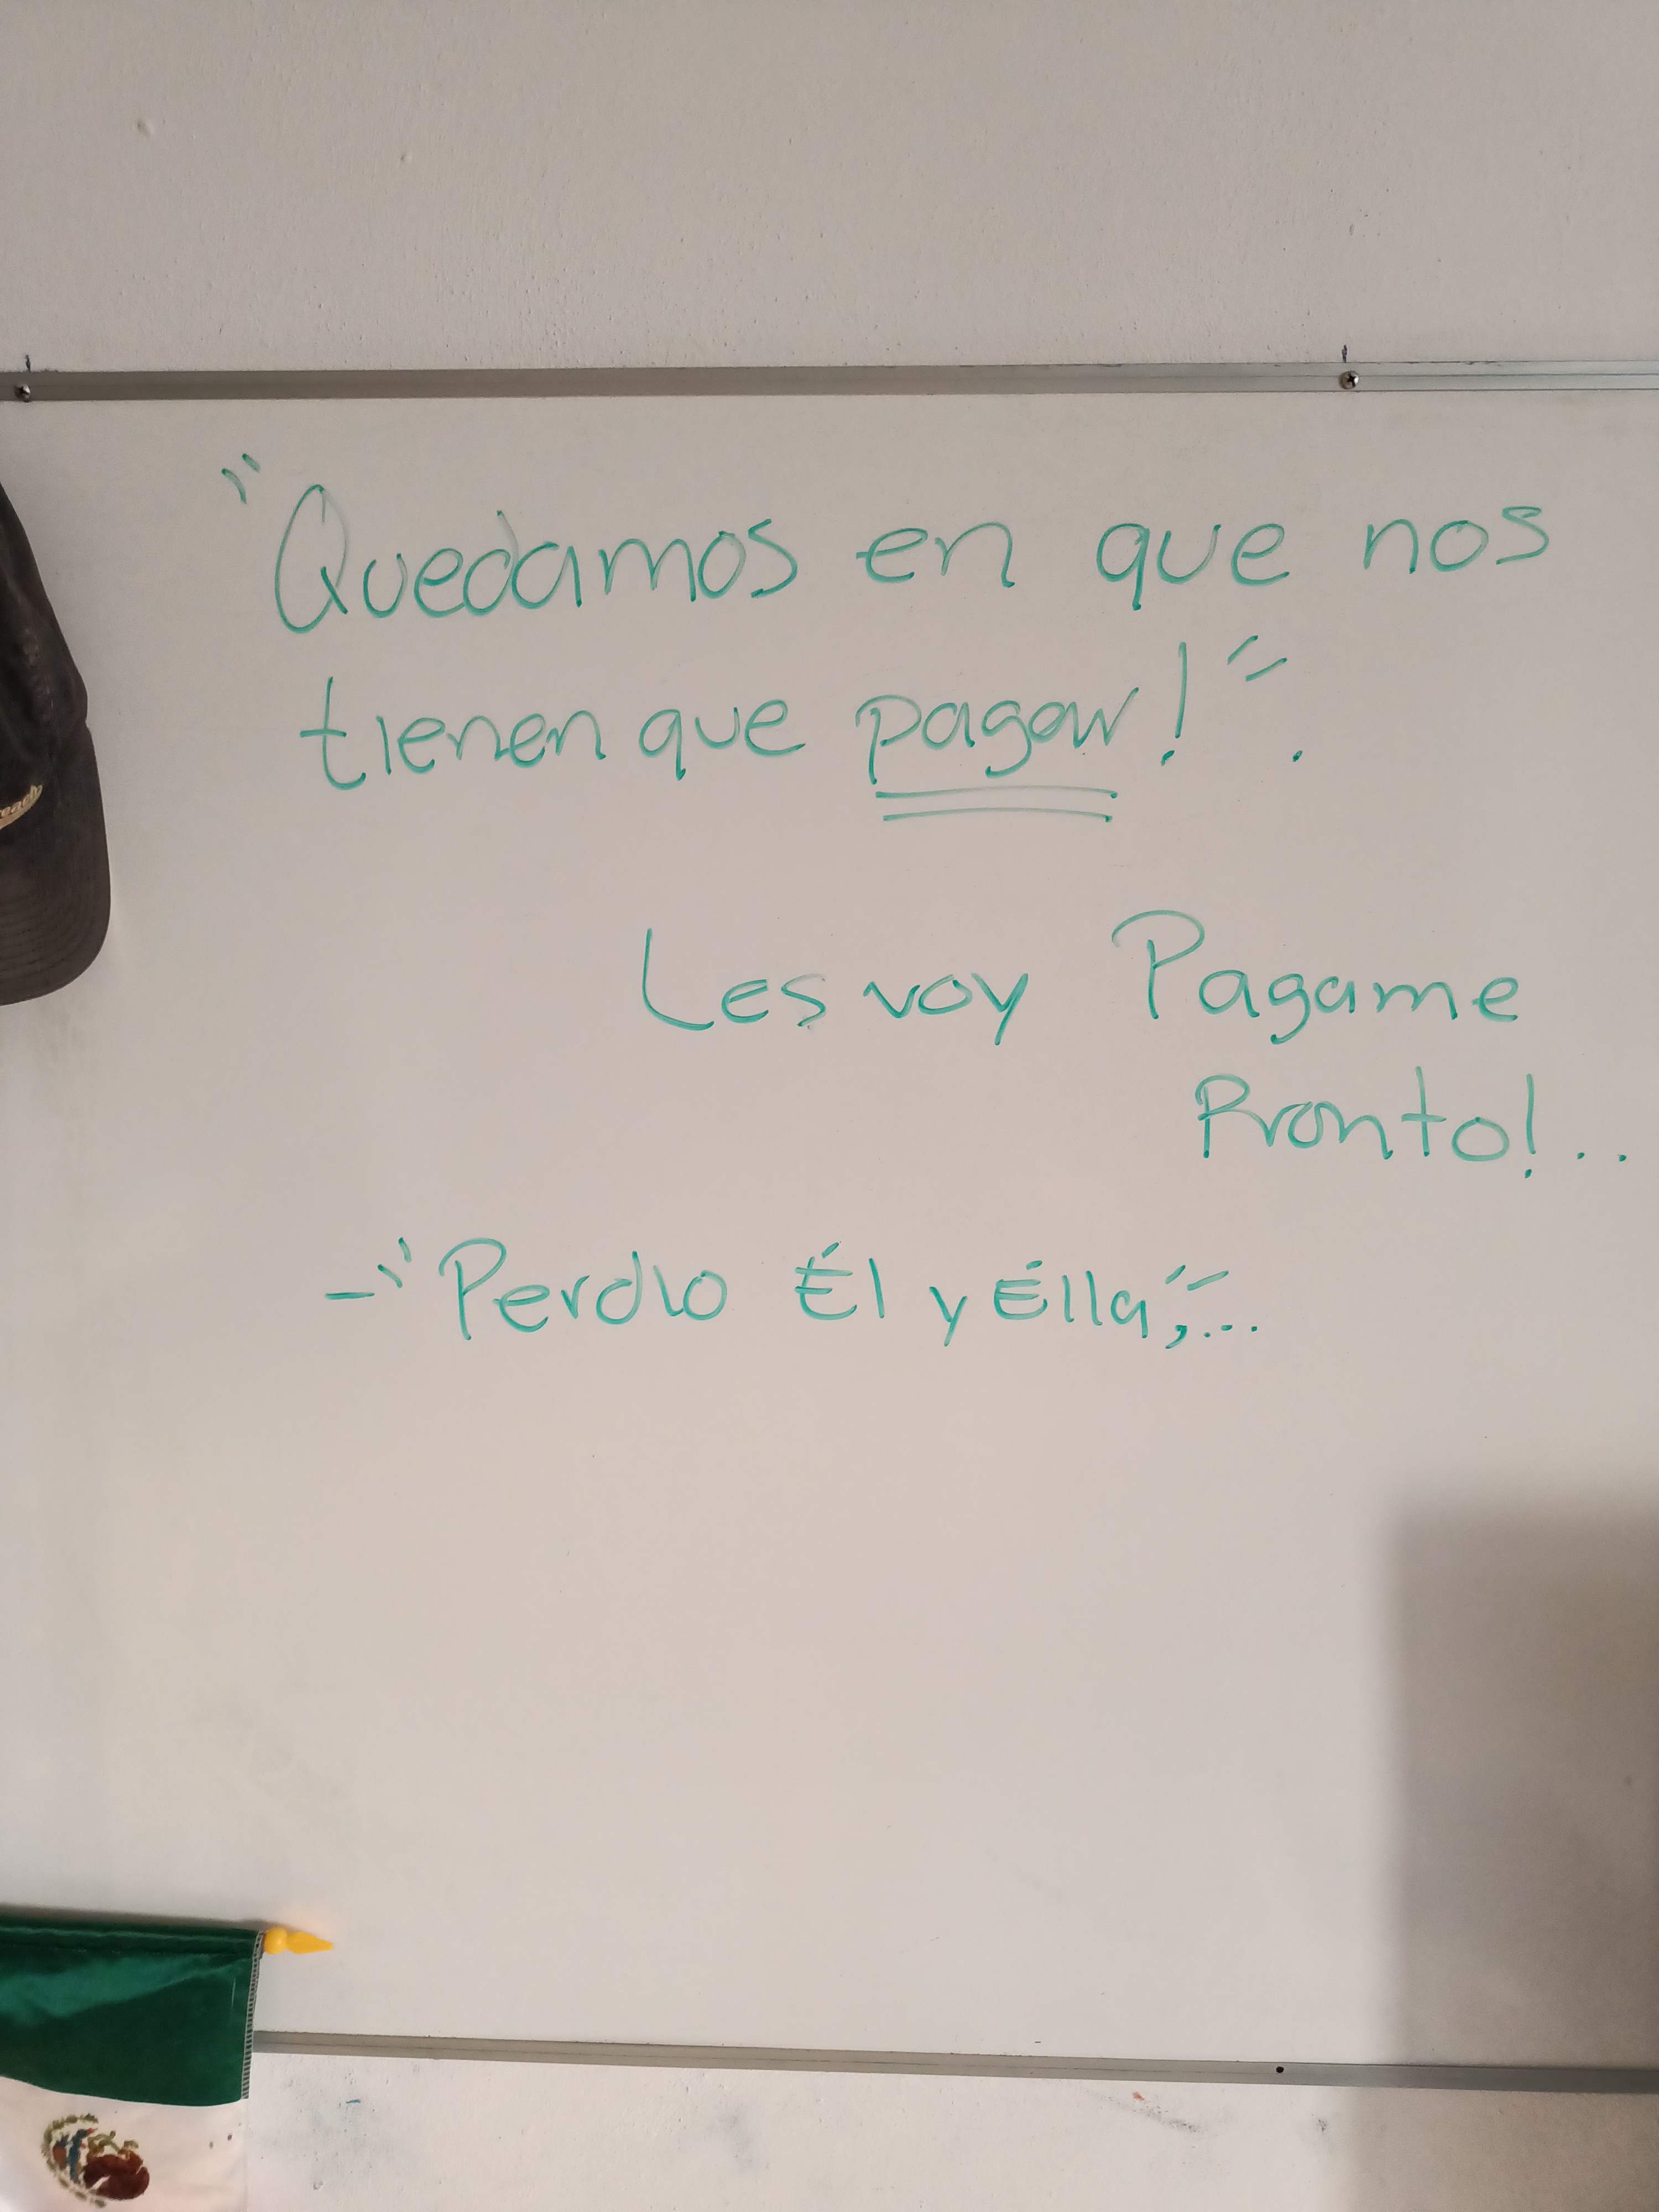 "Quedamos en que nos
tienen que pagar!".
Les voy Pagame
Pronto!..
-"Perdio Él y Élla;"...